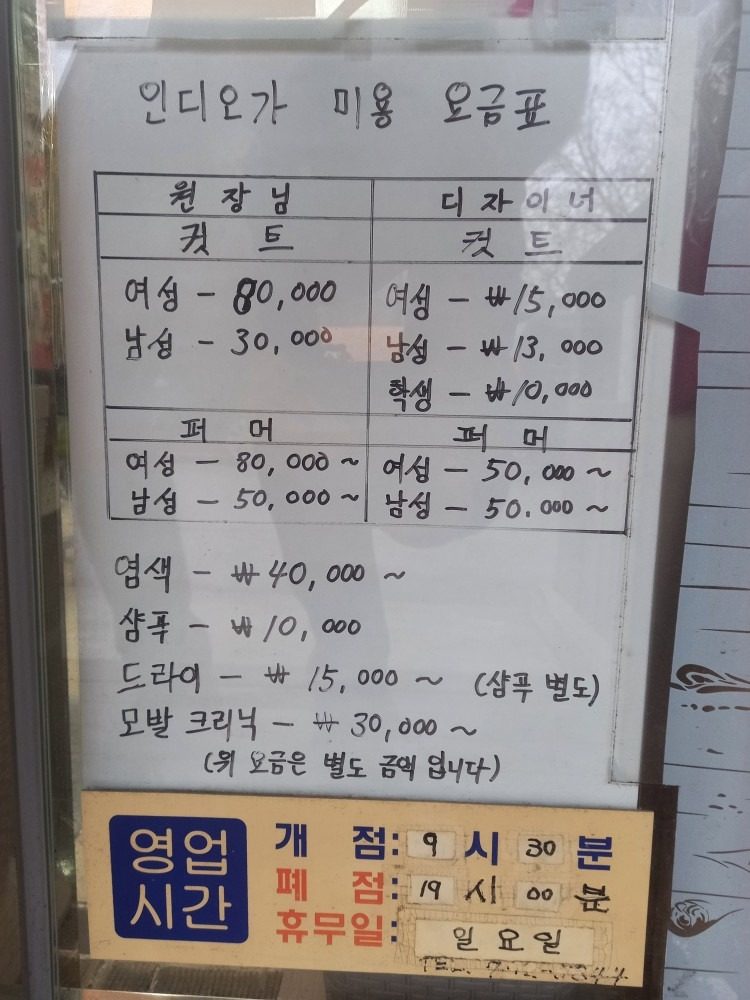 인디오가 미용 요금표
원장님 디자이너
컷트 컷트
여성 - 80,000 여성 - ₩15,000
남성 - 30,000 남성 - ₩13,000
학생 - ₩10,000
퍼머 퍼머
여성 - 80,000 ~ 여성 - 50,000 ~
남성 - 50,000 ~ 남성 - 50.000 ~
염색 - ₩40,000 ~
샴푸 - ₩10,000
드라이 - ₩15,000 ~ (샴푸 별도)
모발 크리닉 - ₩30,000 ~
(위 요금은 별도 금액 입니다)
영업시간
개 점: 9 시 30 분
폐 점: 19 시 00 분
휴무일: 일요일
TEL.